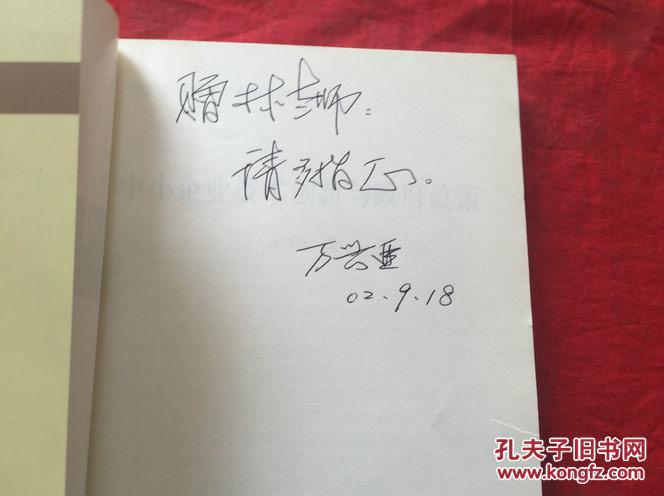 赠林老师：
请多指正。
万兴亚
02.9.18
中小企业技术创新与政府政策
孔夫子旧书网
www.kongfz.com